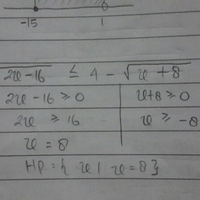 -15 1
√2x-16 ≤ 4 - √x+8
2x-16 ≥ 0 x+8 ≥ 0
2x ≥ 16 x ≥ -8
x = 8
HP = { x | x = 8 }